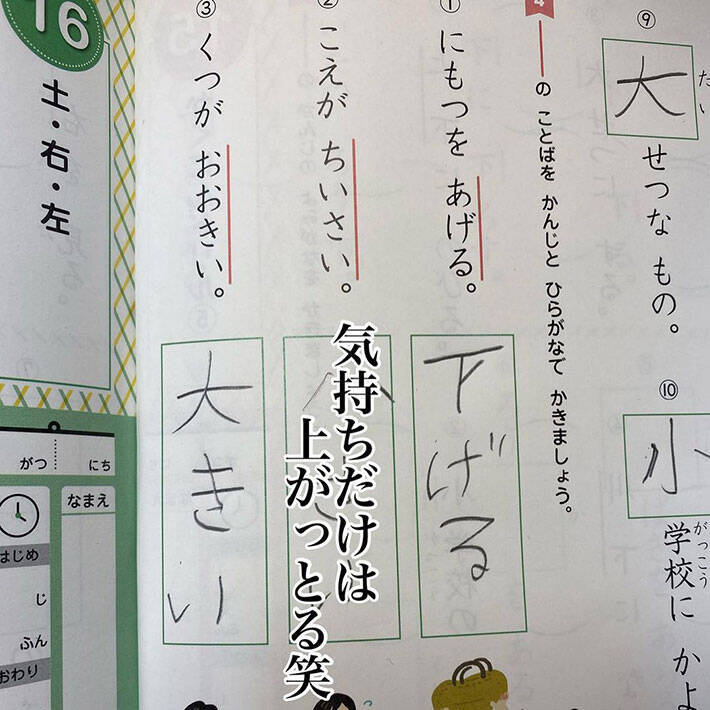 ⑨
大せつな もの。
だい
⑩
小学校に かよ
がっこう
4
の ことばを かんじと ひらがなで かきましょう。
① にもつを あげる。
下げる
② こえが ちいさい。
③ くつが おおきい。
大きい
気持ちだけは
上がっとる笑
16
土・右・左
がつ にち
なまえ
はじめ
じ
ふん
おわり